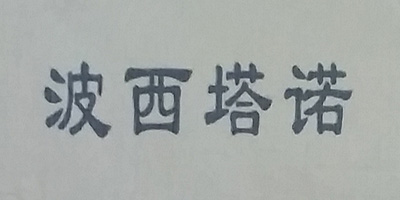 波西塔诺